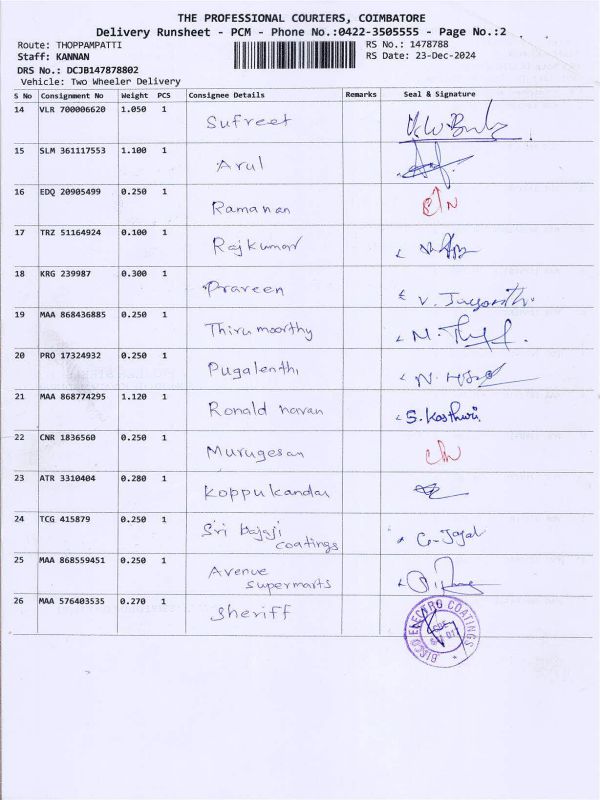 THE PROFESSIONAL COURIERS, COIMBATORE
Delivery Runsheet - PCM - Phone No.:0422-3505555 - Page No.:2
Route: THOPPAMPATTI
RS No.: 1478788
Staff: KANNAN
RS Date: 23-Dec-2024
DRS No.: DCJB147878802
Vehicle: Two Wheeler Delivery
S No Consignment No Weight PCS Consignee Details Remarks Seal & Signature
14 VLR 700006620 1.050 1 Sufreet
15 SLM 361117553 1.100 1 Arul
16 EDQ 20905499 0.250 1 Ramanan
17 TRZ 51164924 0.100 1 Rajkumar
18 KRG 239987 0.300 1 Praveen
19 MAA 868436885 0.250 1 Thirumoorthy
20 PRO 17324932 0.250 1 Pugalenthi
21 MAA 868774295 1.120 1 Ronald navan S. Kasthuri
22 CNR 1836560 0.250 1 Murugesan
23 ATR 3310404 0.280 1 Koppukandan
24 TCG 415879 0.250 1 Sri bajaji
coatings
25 MAA 868559451 0.250 1 Avenue
supermarts
26 MAA 576403535 0.270 1 Sheriff
ELECTRO COATINGS